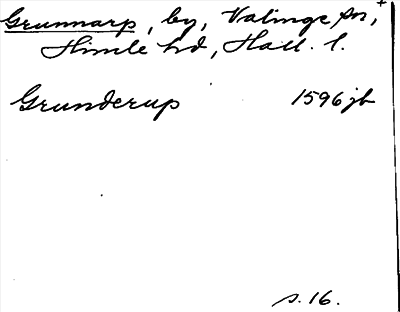 Grunnarp, by, Valinge sn, +
Himle hd, Hall. l.
Grunderup 1596 jb
s. 16.